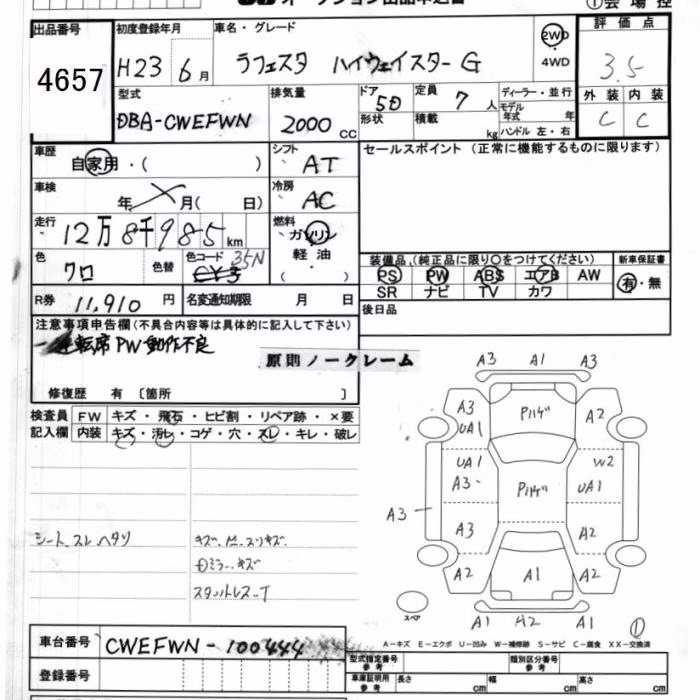 オークション出品申込書
①会場控
出品番号
4657
初度登録年月
H23 6月
車名・グレード
ラフェスタ ハイウェイスターG
2WD
4WD
評価点
3.5
型式
DBA-CWEFWN
排気量
2000 cc
ドア
5D
形状
定員
7人
積載
kg
ディーラー・並行
モデル年式 年
ハンドル 左・右
外装 内装
C C
車歴
自家用・( )
車検
年 月( 日)
シフト
AT
冷房
AC
セールスポイント(正常に機能するものに限ります)
走行
12万8千985km
燃料
ガソリン
軽油
( )
色
クロ
色替
色コード
35N
CY3
装備品(純正品に限り○をつけてください)
PS PW ABS エアB AW
SR ナビ TV カワ
新車保証書
有・無
R券 11,910 円
名変通知期限 月 日
後日品
注意事項申告欄(不具合内容等は具体的に記入して下さい)
運転席PW動作不良
原則ノークレーム
修復歴 有〔箇所 〕
検査員記入欄
FW キズ・飛石・ヒビ割・リペア跡・×要
内装 キズ・汚レ・コゲ・穴・スレ・キレ・破レ
シート スレ ヘタリ
スタットレスT
A3 A1 A3
A3
UA1
A2
UA1
W2
A3
UA1
A3
A3
A2
A2
A1
A2
A1 A2 A1
スペア
①
A-キズ E-エクボ U-凹み W-補修跡 S-サビ C-腐食 XX-交換済
車台番号
CWEFWN-100444
登録番号
型式指定番号
参考
類別区分番号
参考
車庫証明用
参考
長さ cm 幅 cm 高さ cm